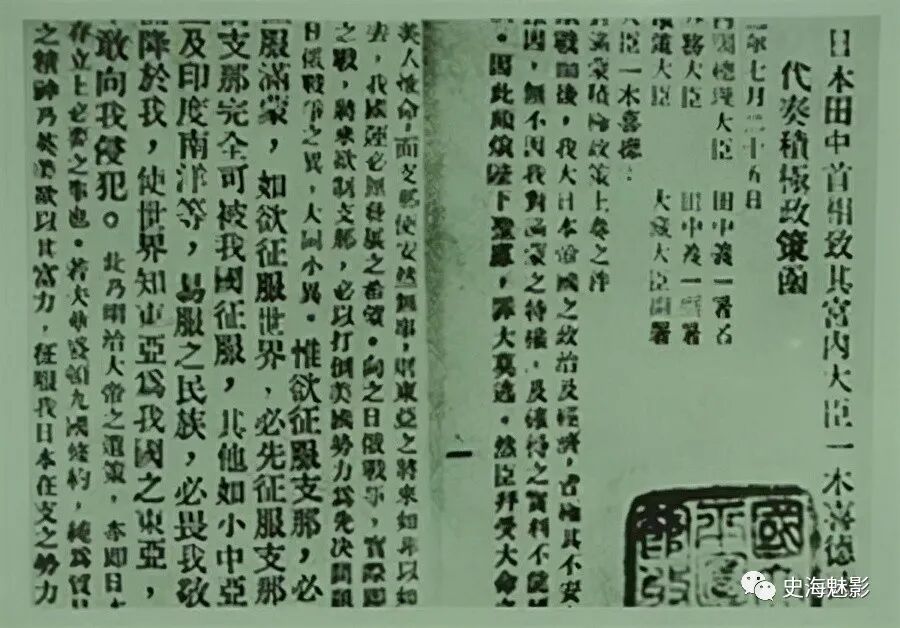 日本田中首相致其宮內大臣一木喜德
代奏積極政策函
年七月二十五日
內閣總理大臣 田中義一署名
務大臣 田中義一署
鐵道大臣 大藏大臣同署
大臣一木喜德
滿蒙積極政策上奏之件
歐戰而後，我大日本帝國之政治及經濟，皆極其不安
因，無不因我對滿蒙之特權，及確得之實利不能
。因此頗煩陛下聖慮，罪大莫逃。然臣拜受大命之
一
英人惟命，而支那便安然無事，則東亞之將來如非以如
去，我國運必無發展之希望。向之日俄戰爭，實際即
之戰，將來欲制支那，必以打倒美國勢力爲先決問題
日俄戰爭之異，大同小異。惟欲征服支那，必
征服滿蒙，如欲征服世界，必先征服支那
支那完全可被我國征服，其他如小中亞
及印度南洋等，異服之民族，必畏我敬
降於我，使世界知東亞爲我國之東亞，
敢向我侵犯。此乃明治大帝之遺策，亦即日本
存立上必要之事也。若夫華盛頓九國條約，純爲貿易
之精神乃英美欲以其富力，征服我日本在支之勢力
國
史海魅影